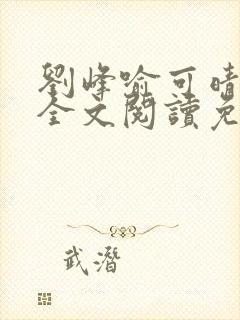 劉峰喻可晴
全文閱讀免
武潛